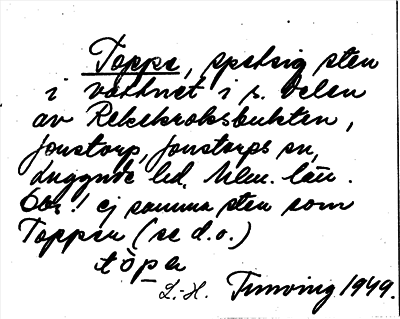 Toppe, spetsig sten
i vattnet i s. delen
av Rekekroksbukten,
Jonstorp, Jonstorps sn,
Luggude hd, Mlm. län.
Obs! ej samma sten som
Toppen (se d.o.)
tòpa
L.-H. 1949.